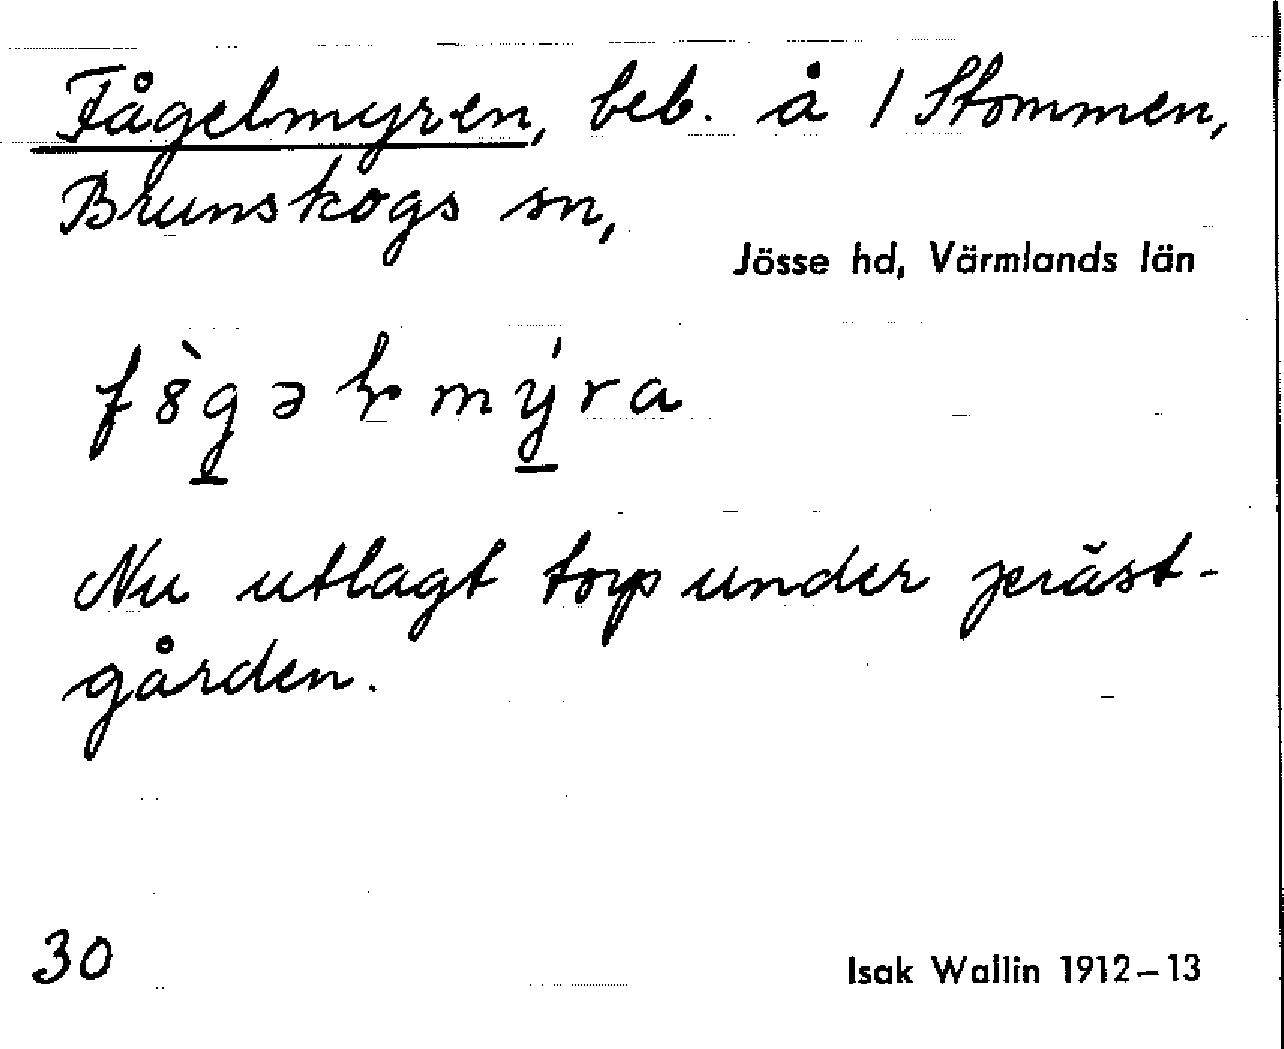 Fågelmyren, beb. å 1 Stommen,
Brunskogs sn,
Jösse hd, Värmlands län
Nu utlagt torp under präst-
gården.
30
Isak Wallin 1912-13